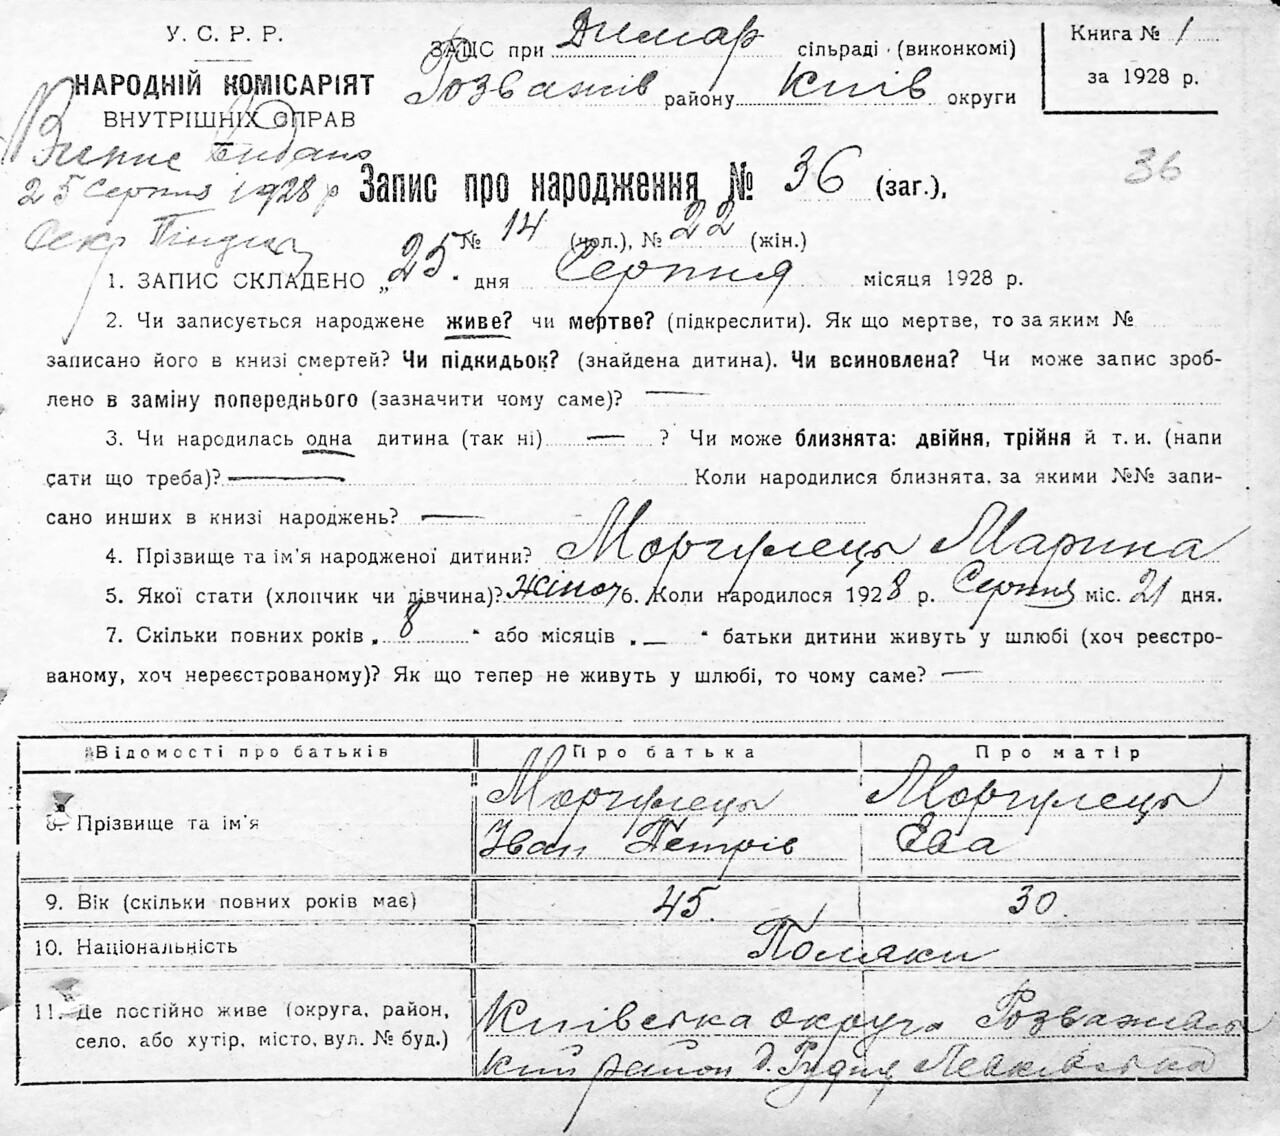 У. С. Р. Р.
НАРОДНІЙ КОМІСАРІЯТ
ВНУТРІШНІХ СПРАВ
Випис видано
25 Серпня 1928 р
Секр
ЗАПИС при Димар сільраді (виконкомі)
Розважів району Київ округи
Книга № 1
за 1928 р.
36
Запис про народження № 36 (заг.),
№ 14 (чол.), № 22 (жін.)
1. ЗАПИС СКЛАДЕНО „25." дня Серпня місяця 1928 р.
2. Чи записується народжене живе? чи мертве? (підкреслити). Як що мертве, то за яким №
записано його в книзі смертей? Чи підкидьок? (знайдена дитина). Чи всиновлена? Чи може запис зроб-
лено в заміну попереднього (зазначити чому саме)? —
3. Чи народилась одна дитина (так ні) — ? Чи може близнята: двійня, трійня й т. и. (напи
сати що треба)? — Коли народилися близнята, за якими №№ запи-
сано инших в книзі народжень? —
4. Прізвище та ім'я народженої дитини? Моргулець Марина
5. Якої стати (хлопчик чи дівчина)? жіноч 6. Коли народилося 1928 р. Серпня міс. 21 дня.
7. Скільки повних років „ 8 " або місяців „ — " батьки дитини живуть у шлюбі (хоч реєстро-
ваному, хоч нереєстрованому)? Як що тепер не живуть у шлюбі, то чому саме? —
Відомості про батьків Про батька Про матір
8. Прізвище та ім'я Моргулець Моргулець
Іван Петрів Ева
9. Вік (скільки повних років має) 45. 30.
10. Національність Поляки
11. Де постійно живе (округа, район, Київська округа Розважівсь
село, або хутір, місто, вул. № буд.) кий район д. Рудня Леаківська